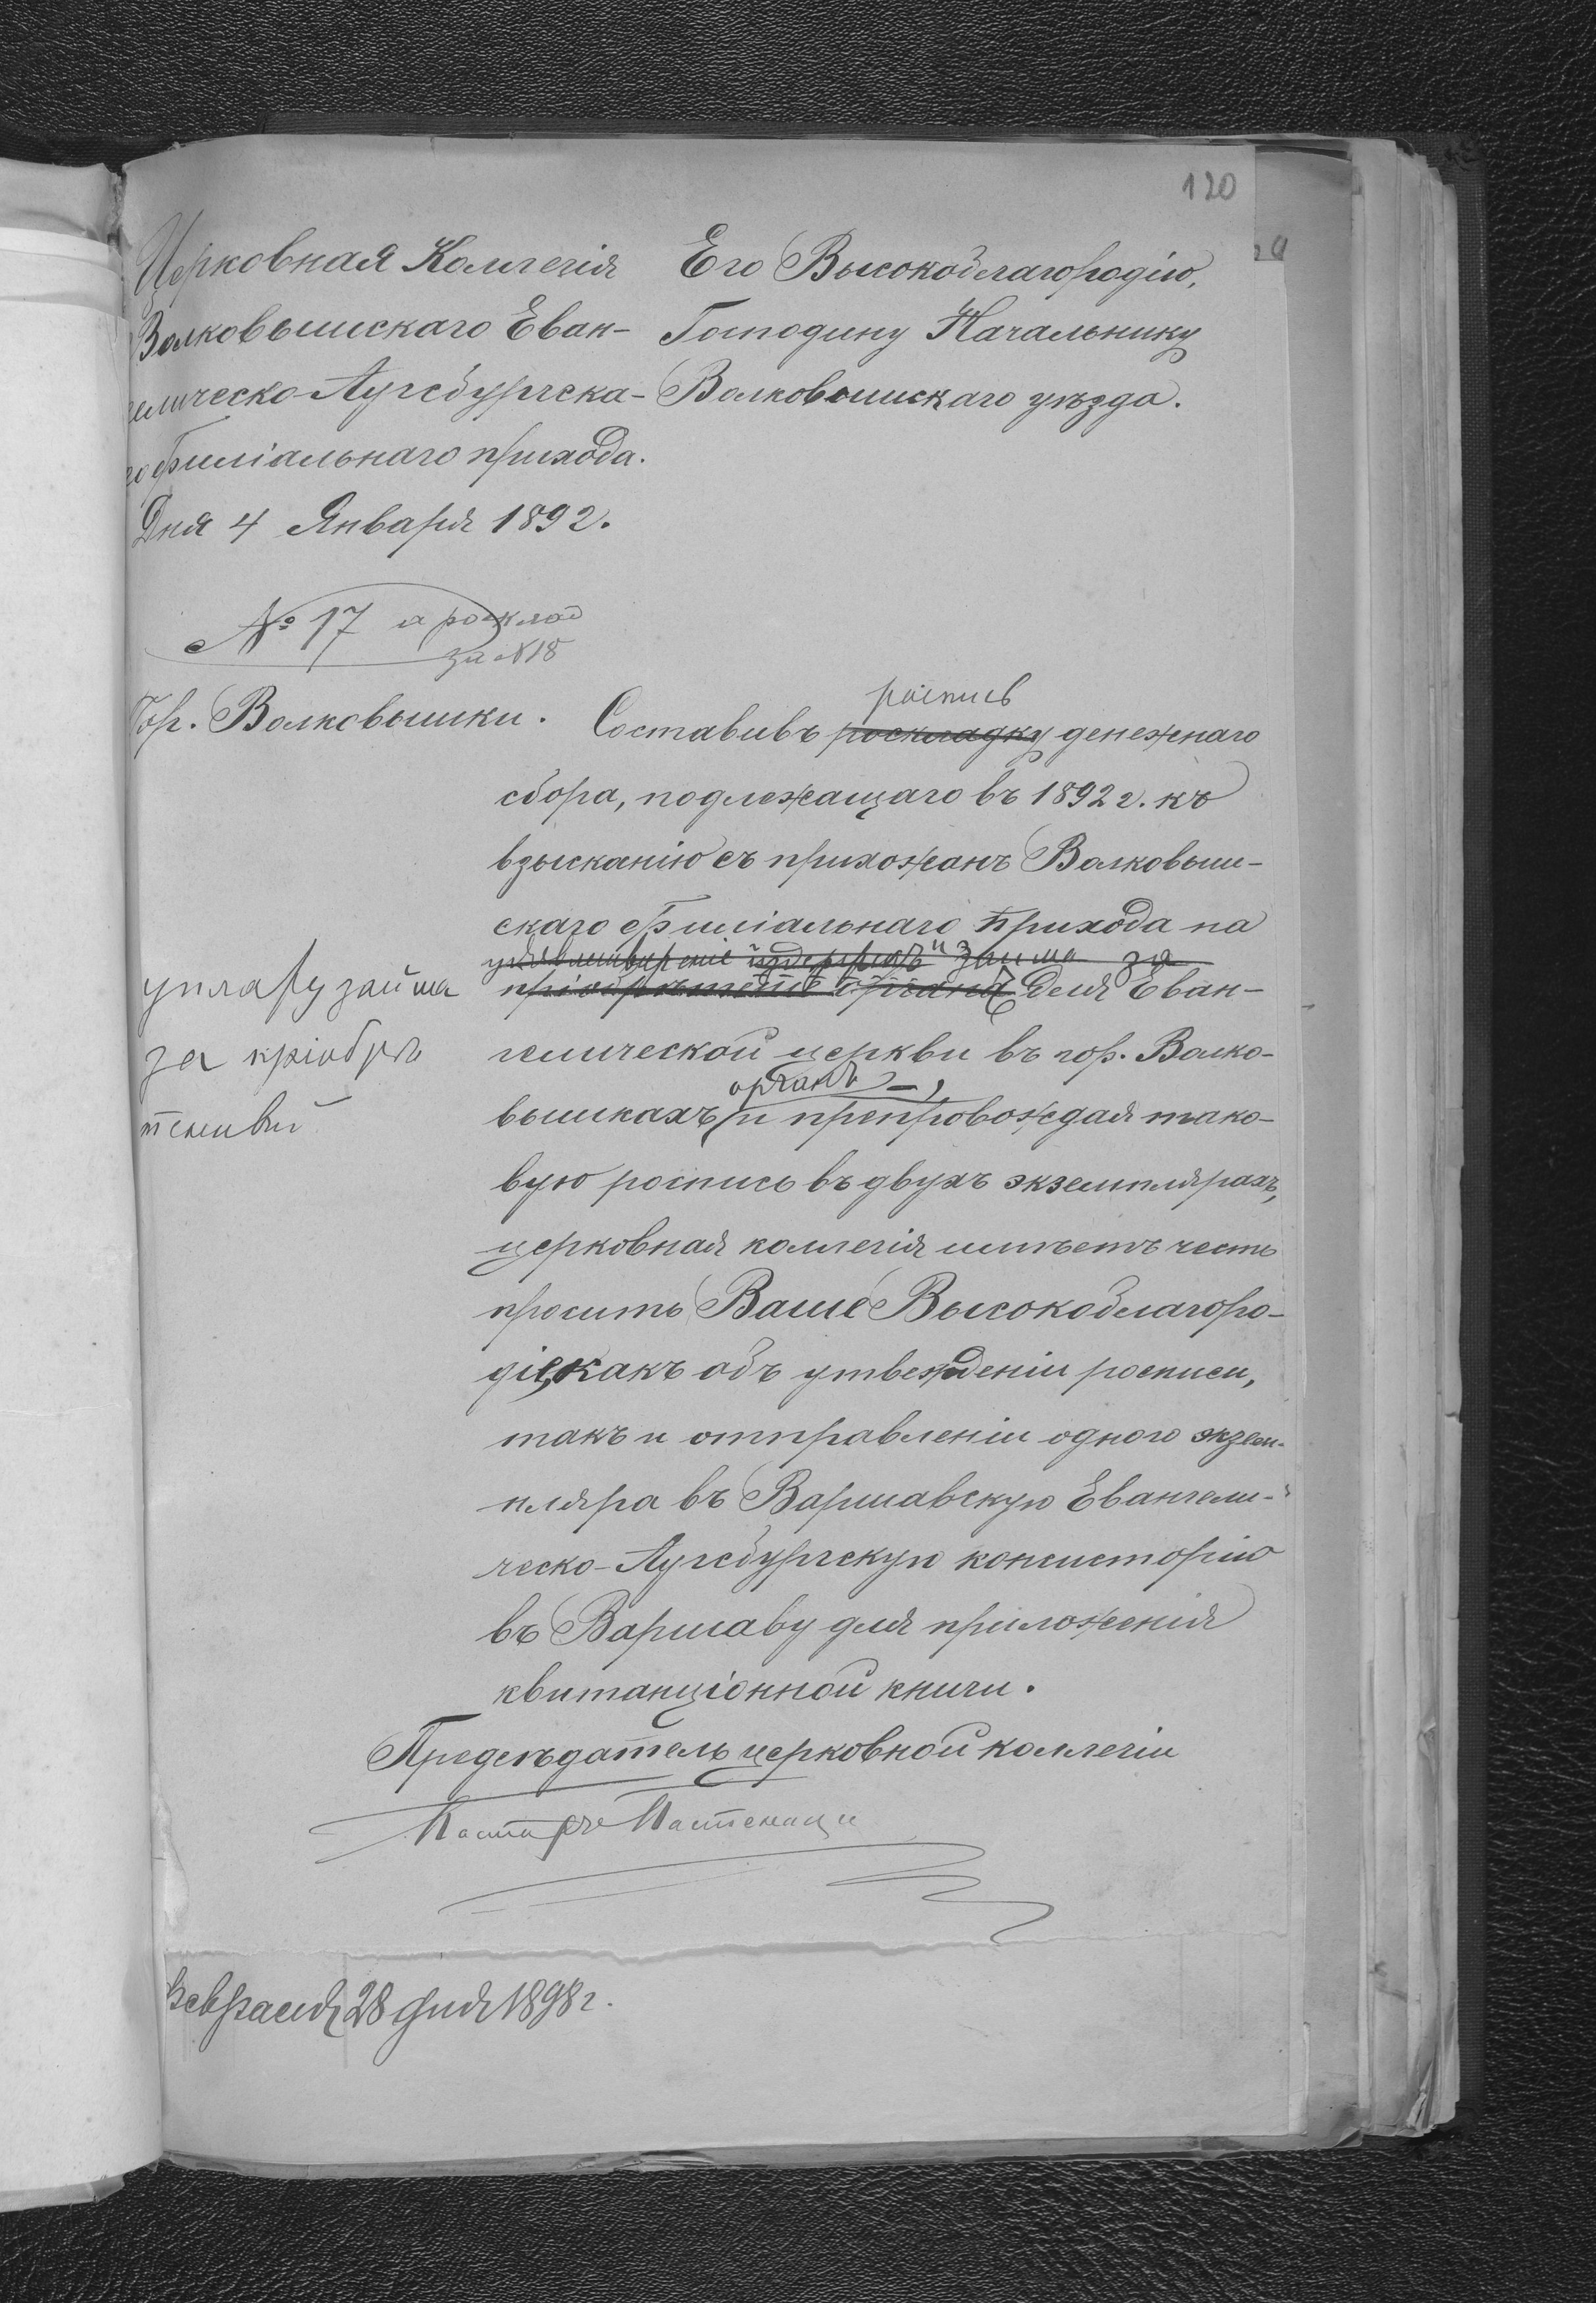 120
Церковная Коллегія
Волковышскаго Еван-
гелическо-Аугсбургска-
го Филіальнаго прихода.
Дня 4 Января 1892.
№ 17 а росклад
за №18
Гор. Волковышки.
Его Высокоблагородію,
Господину Начальнику
Волковышскаго уѣзда.
роспись
Составивъ роскладку денежнаго
сбора, подлежащаго въ 1892 г. къ
взысканію съ прихожанъ Волковыш-
скаго Филіальнаго прихода на
издержекъ и займа за
пріобрѣтеніе органа для Еван-
уплату займа
за пріобрѣ
тенный
гелической церкви въ гор. Волко-
органъ
вышкахъ и препровождая тако-
вую роспись въ двухъ экземплярахъ,
церковная коллегія имѣетъ честь
просить Ваше Высокоблагоро-
діе, какъ объ утвежденіи росписи,
такъ и отправленіи одного экзем-
пляра въ Варшавскую Евангели-
ческо-Аугсбургскую консисторію
въ Варшаву для приложенія
квитанціонной книги.
Предсѣдатель церковной коллегіи
Пасторъ
Февраля 28 дня 1898 г.